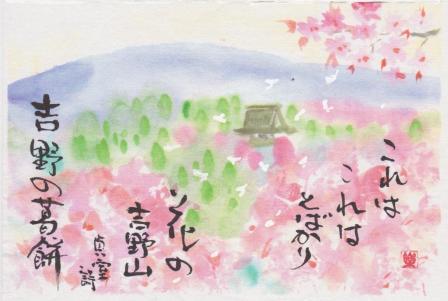 これは
これは
とばかり
花の
吉野山
貞室
吉野の葛餅